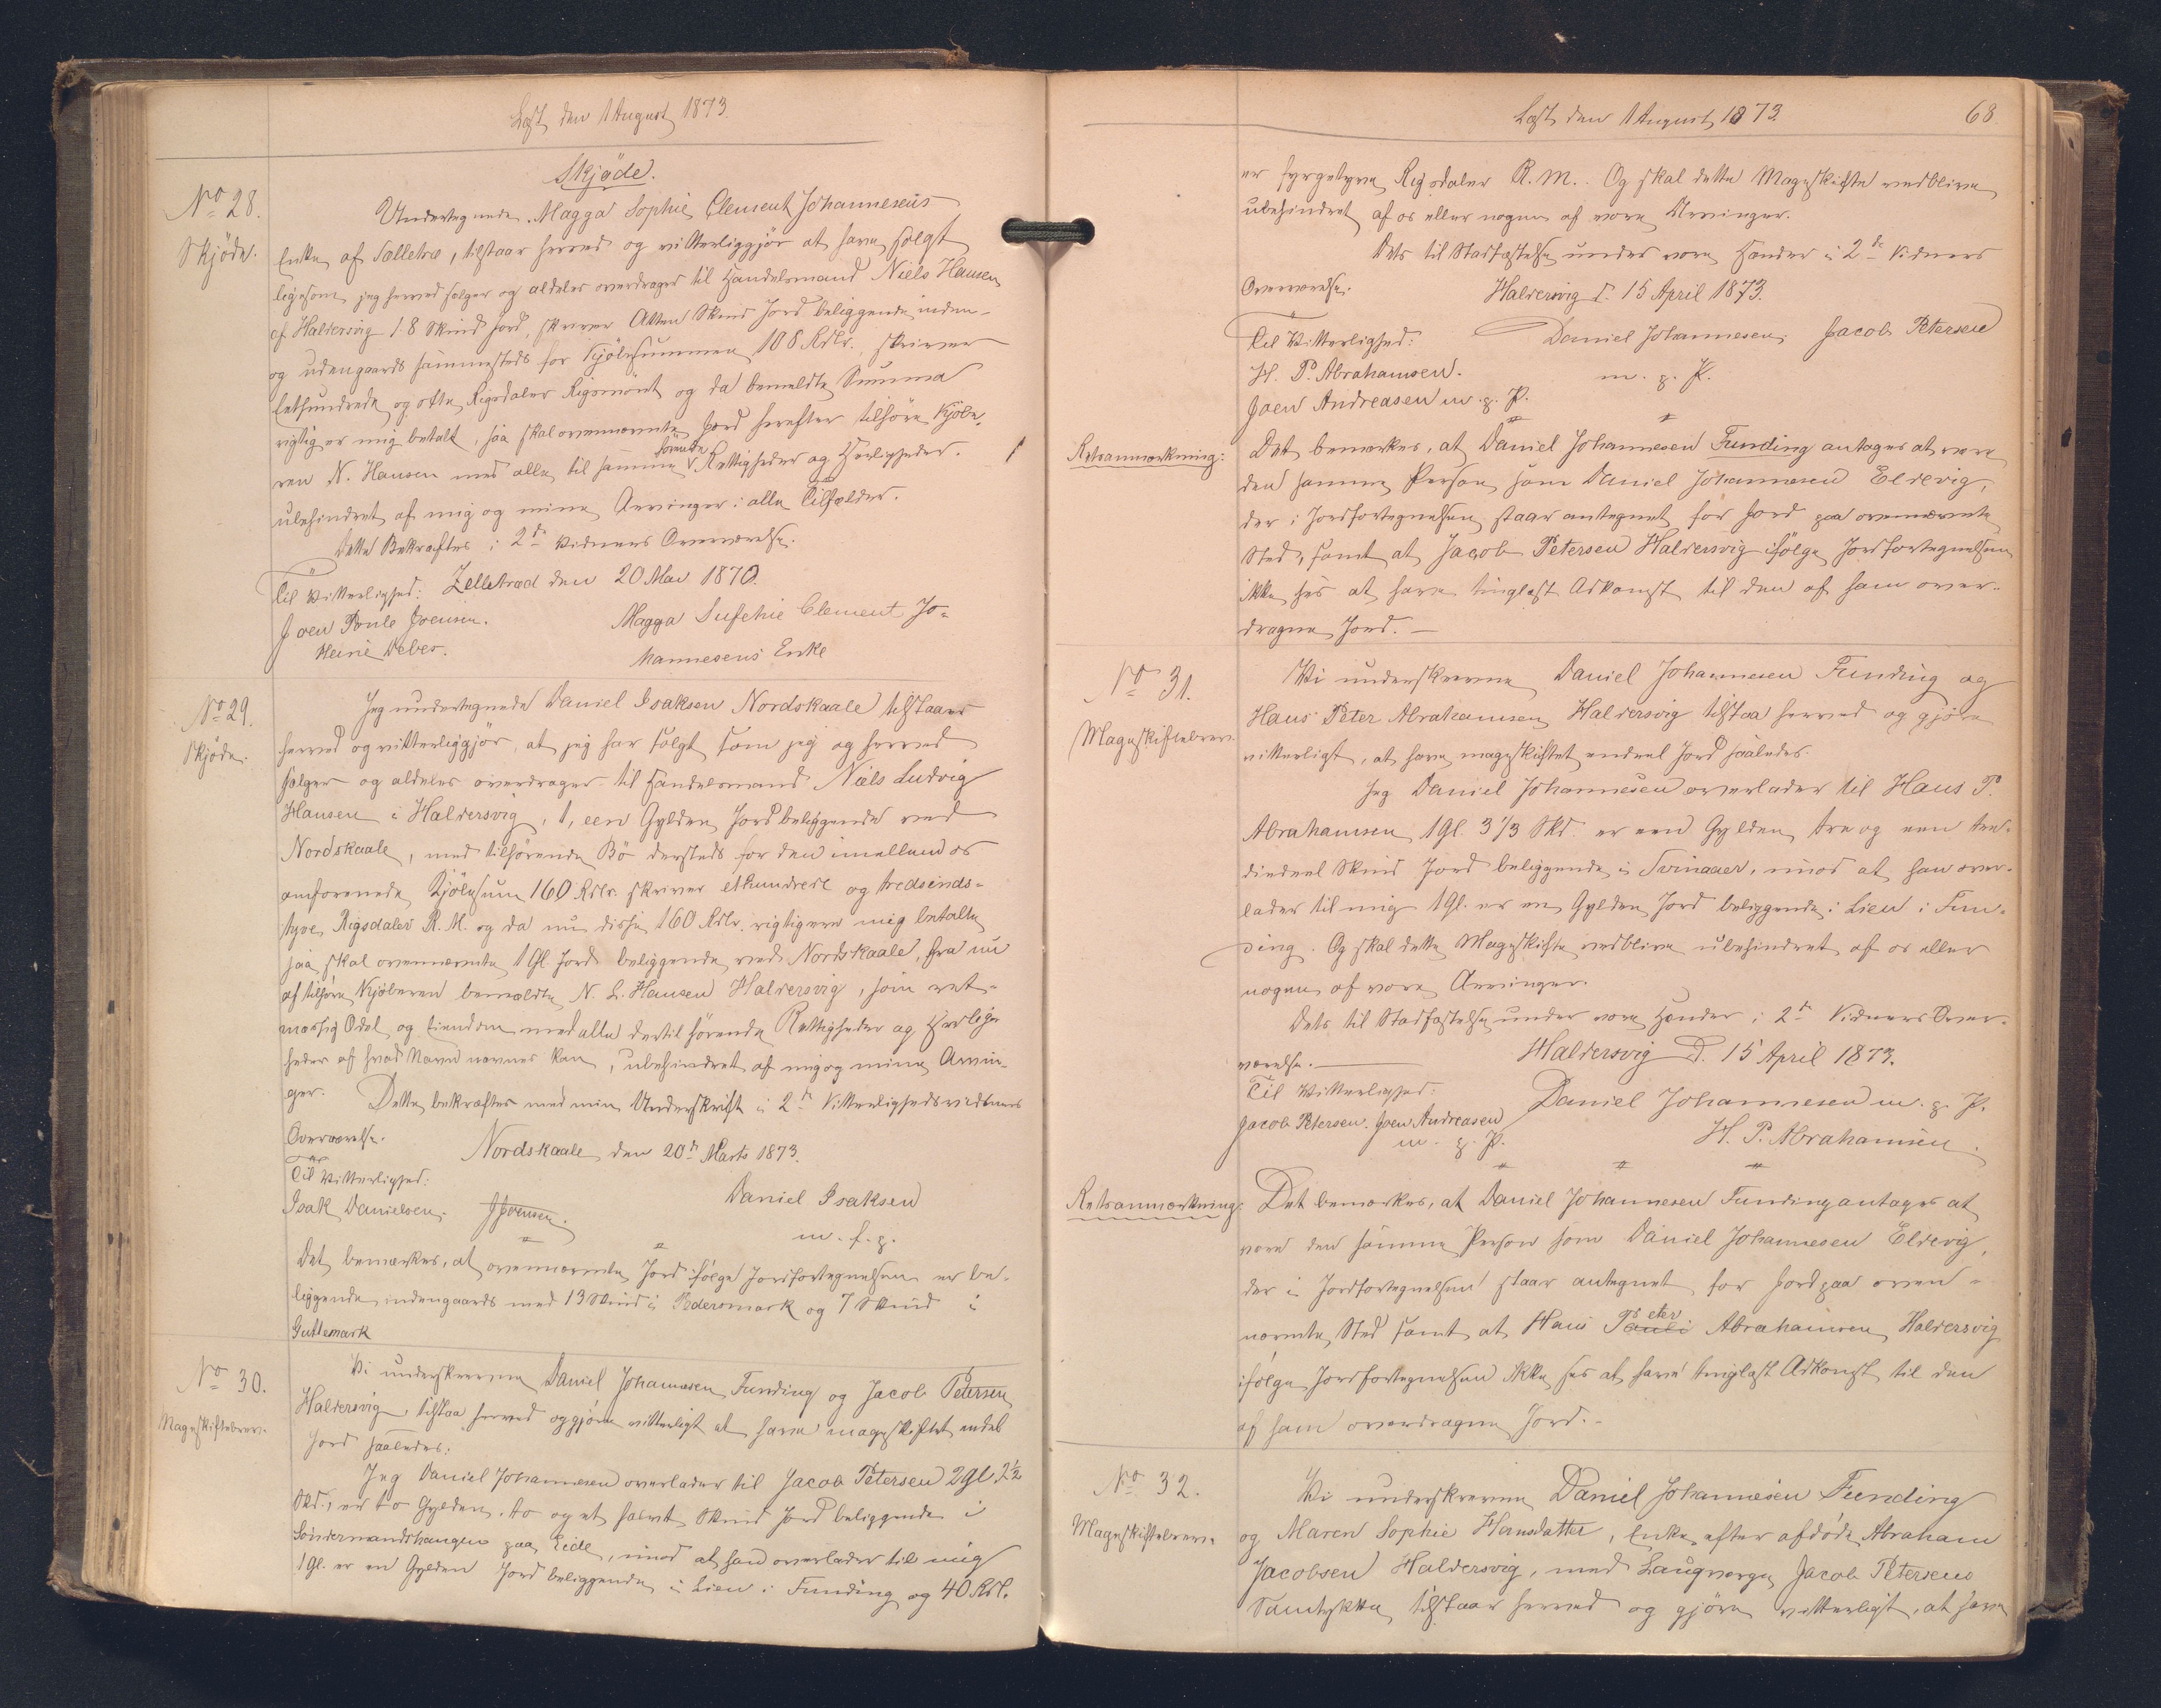 Læst den 1 August 1873.
Skjöde.
No 28.
Skjöde.
Undertegnede Magga Sophie Clement Johannesens
Enke af Sælletræ, tilstaar herved og vitterliggjör at have solgt
ligesom jeg herved sælger og aldeles overdrager til Handelsmand Niels Hansen
af Haldersvig 18 Skind Jord, skriver Atten Skind Jord beliggende inden-
og udengaards sammesteds for Kjöbesummen 108 Rdlr. skriver
Eethundrede og otte Rigsdaler Rigsmönt og da bemeldte Summa
rigtig er mig betalt, saa skal ovennævnte Jord herefter tilhöre Kjöbe-
ren N. Hansen med alle til samme hörende Rettigheder og Herligheder.
ubehindret af mig og mine Arvinger i alle Tilfælder.
Dette Bekræftes i 2de Vidners Overværelse.
Zelletræd den 20 Mai 1870.
Til Vitterlighed:
Joen Poule Joensen.
Heine Debes.
Magga Sufehie Clement Jo-
hannesens Enke
No 29.
Skjöde.
Jeg undertegnede Daniel Isaksen Nordskaale tilstaar
herved og vitterliggjör, at jeg har solgt som jeg og herved
sælger og aldeles overdrager til Handelsmand Niels Ludvig
Hansen i Haldersvig, 1, een Gylden Jord beliggende ved
Nordskaale, med tilhörende Bö dersteds for den imellem os
omforenede Kjöbesum 160 Rdlr. skriver ethundrede og tredsinds-
tyve Rigsdaler R. M. og da nu disse 160 Rdlr. rigtig ere mig betalte
saa skal ovennævnte 1 Gl Jord beliggende ved Nordskaale, fra nu
af tilhöre Kjöberen bemældte N. L. Hansen Haldersvig, som ret-
mæssig Odel og Eiendom med alle dertil hörende Rettigheder og Herlig-
heder af hvad Navn nævnes kan, ubehindret af mig og mine Arvin-
ger. Dette bekræftes med min Underskrift i 2de Vitterlighedsvidners
Overværelse.
Nordskaale, den 20de Marts 1873.
Til Vitterlighed:
Isak Danielsen. JJoensen.
Daniel Isaksen
m. f. p.
Det bemærkes, at ovennævnte Jord ifölge Jordfortegnelsen er be-
liggende indengaards med 13 Skind i Pedersmark og 7 Skind i
Guttemark
No 30.
Mageskiftebrev.
Vi underskrevne Daniel Johannesen Funding og Jacob Petersen
Haldersvig, tilstaa herved og gjöre vitterligt at have mageskiftet endel
Jord saaledes:
Jeg Daniel Johannesen overlader til Jacob Petersen 2 gl. 2½
Skd., er to Gylden, to og et halvt Skind Jord beliggende i
Söndermandshaugen paa Eide, imod at han overlader til mig
1 gl. er en Gylden Jord beliggende i Lien i Funding og 40 Rdl.
Læst den 1 August 1873
68
er fyrgetyve Rigsdaler R. M. Og skal dette Mageskifte vedblive
ubehindret af os eller nogen af vore Arvinger.
Dets til Stadfæstelse under vore Hænder i 2de Vidners
Overværelse.
Haldersvig d. 15 April 1873.
Til Vitterlighed:
Daniel Johannesen. Jacob Petersen
H. P. Abrahamsen.
m. p. P.
Joen Andreasen m. p. P.
Retsanmærkning:
Det bemærkes, at Daniel Johannesen Funding antages at være
den samme Person som Daniel Johannesen Eldevig,
der i Jordfortegnelsen staar antegnet for Jord paa ovennævnte
Sted, samt at Jacob Petersen Haldersvig ifölge Jordfortegnelsen
ikke ses at have tinglæst Adkomst til den af ham over-
dragne Jord. —
No 31.
Mageskiftebrev.
Vi underskrevne Daniel Johannesen Funding og
Hans Peter Abrahamsen Haldersvig tilstaa herved og gjöre
vitterligt, at have mageskiftet endeel Jord saaledes.
Jeg Daniel Johannesen overlader til Hans P.
Abrahamsen 1 Gl. 3 1/3 Skd. er een Gylden, tre og een tre-
diedeel Skind Jord beliggende i Svinaaer, imod at han over-
lader til mig 1 Gl. er en Gylden Jord beliggende i Lien i Fun-
ding. Og skal dette Mageskifte vedblive ubehindret af os eller
nogen af vore Arvinger.
Dets til Stadfæstelse under vore Hænder i 2de Vidners Over-
værelse.
Haldersvig d. 15 April 1873.
Til Vitterlighed:
Jacob Petersen. Joen Andreasen
m. p. P.
Daniel Johannesen m. p. P.
H. P. Abrahamsen.
Retsanmærkning:
Det bemærkes, at Daniel Johannesen Funding antages at
være den samme Person som Daniel Johannesen Eldevig,
der i Jordfortegnelsen staar antegnet for Jord paa oven-
nævnte Sted samt at Hans Pauli Peter Abrahamsen Haldersvig
ifölge Jordfortegnelsen ikke ses at have tinglæst Adkomst til den
af ham overdragne Jord. -
No 32.
Mageskiftebrev.
Vi underskrevne Daniel Johannesen Funding
og Maren Sophie Hansdatter, Enke efter afdöde Abraham
Jacobsen Haldersvig, med Laugværge Jacob Petersens
Samtykke tilstaar herved og gjöre vitterligt, at have